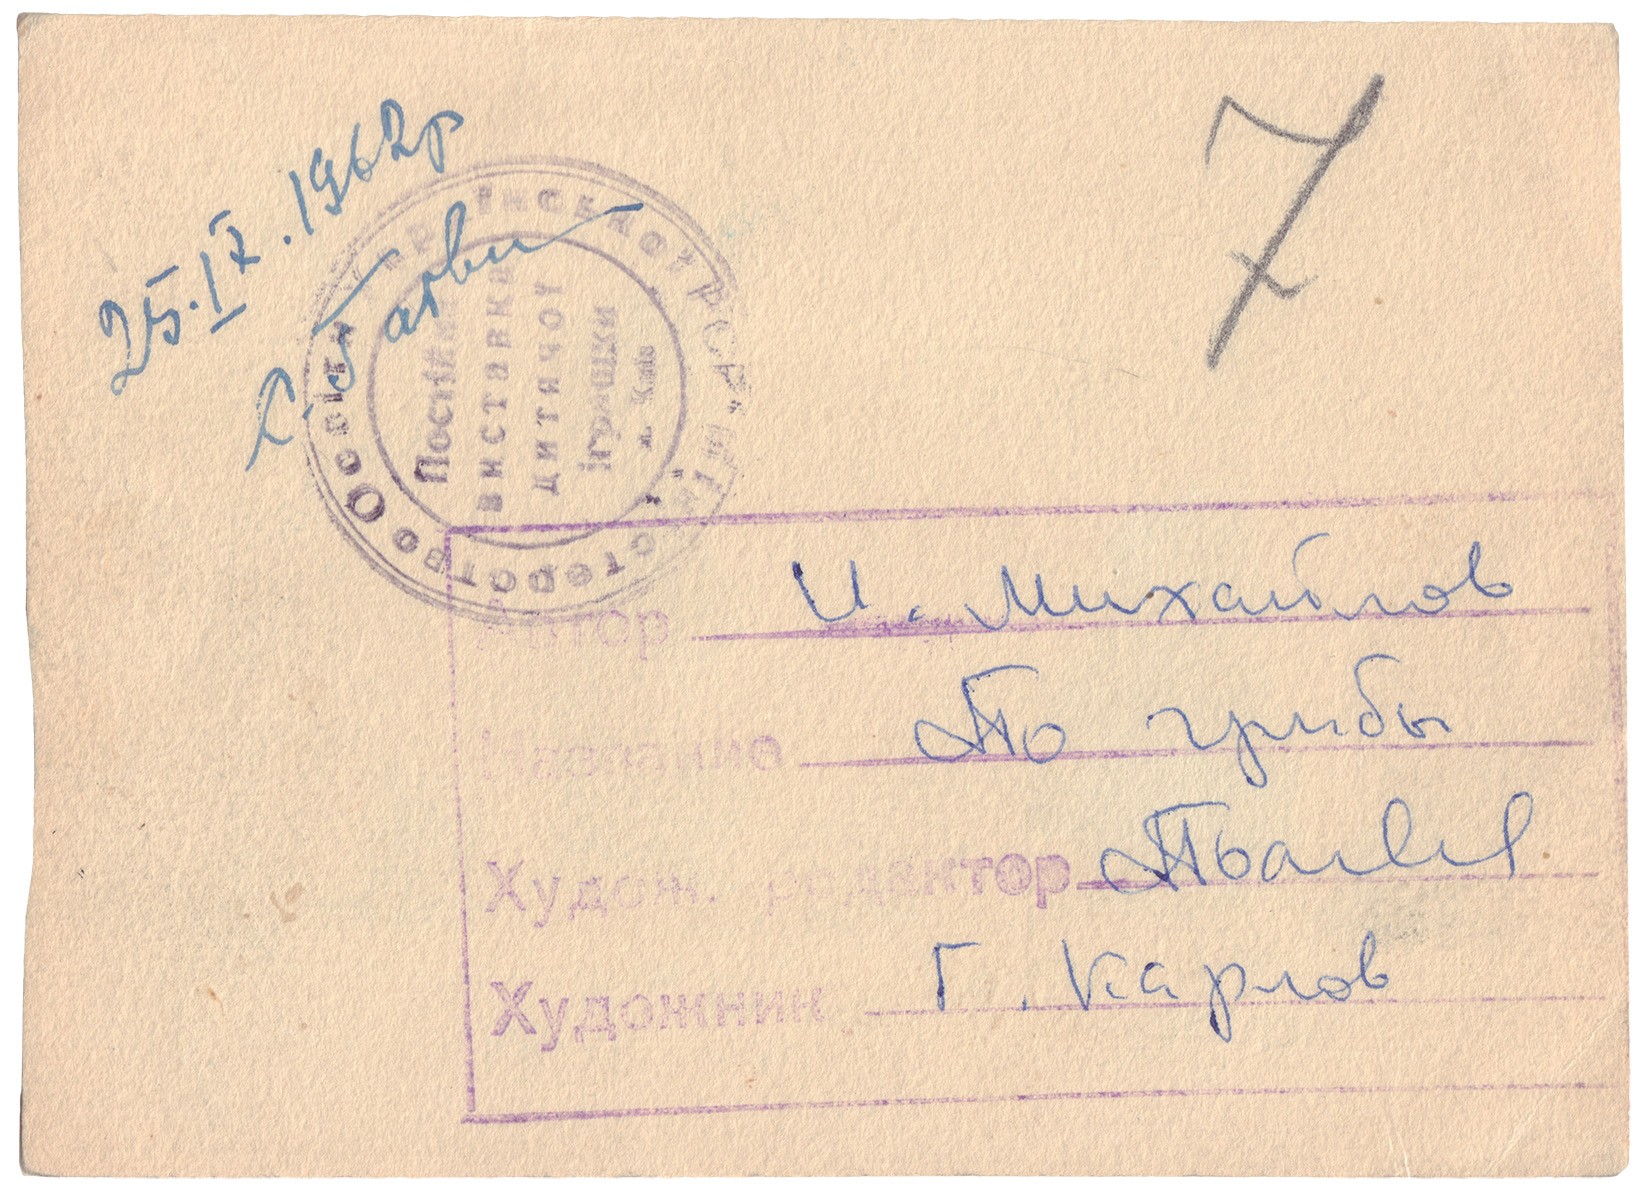 25.IX.1962р
7
Міністерство Освіти Української РСР
Постійна
виставка
дитячої
м. Київ
Автор И. Михайлов
Название По грибы
Худож. редактор
Художник Г. Карлов